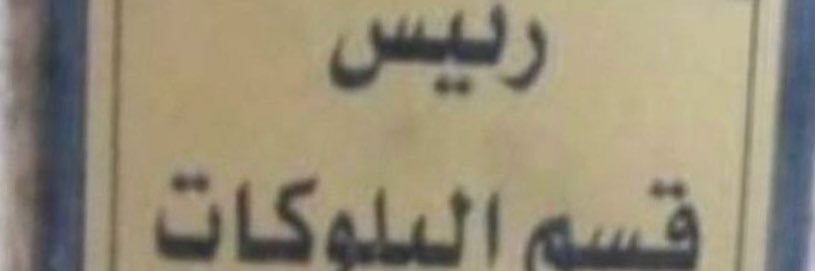 رئيس
قسم البلوكات